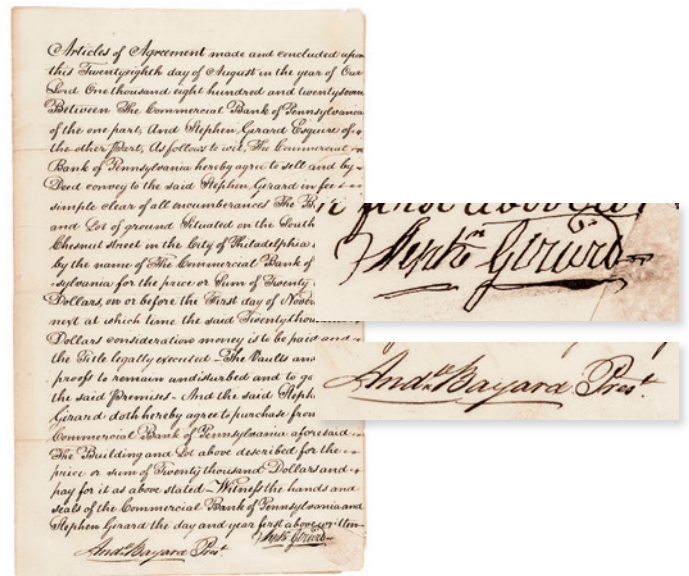 Articles of Agreement made and concluded upon
this Twentyeighth day of August in the year of Our
Lord One thousand eight hundred and twentyseven
Between The Commercial Bank of Pennsylvania
of the one part, And Stephen Girard Esquire of
the other Part, As follows to wit, The Commercial
Bank of Pennsylvania hereby agree to sell and by
Deed convey to the said Stephen Girard in fee
simple clear of all encumberances The B
and Lot of ground Situated on the South
Chesnut street in the City of Philadelphia
by the name of The Commercial Bank of
sylvania for the price or Sum of Twenty
Dollars, on or before the First day of Novem
next at which time the said Twenty thou
Dollars consideration money is to be paid and
the Title legally executed – The Vaults and
proofs to remain undisturbed and to go
the said Premises – And the said Steph
Girard doth hereby agree to purchase from
Commercial Bank of Pennsylvania aforesaid
The Building and Lot above described for the
price or sum of Twenty thousand Dollars and
pay for it as above stated – Witness the hands and
seals of the Commercial Bank of Pennsylvania and
Stephen Girard the day and year first above written
Stephn Girard
Andw Bayard Prest.
first above wr
Stephn Girard
Andw Bayard Prest.